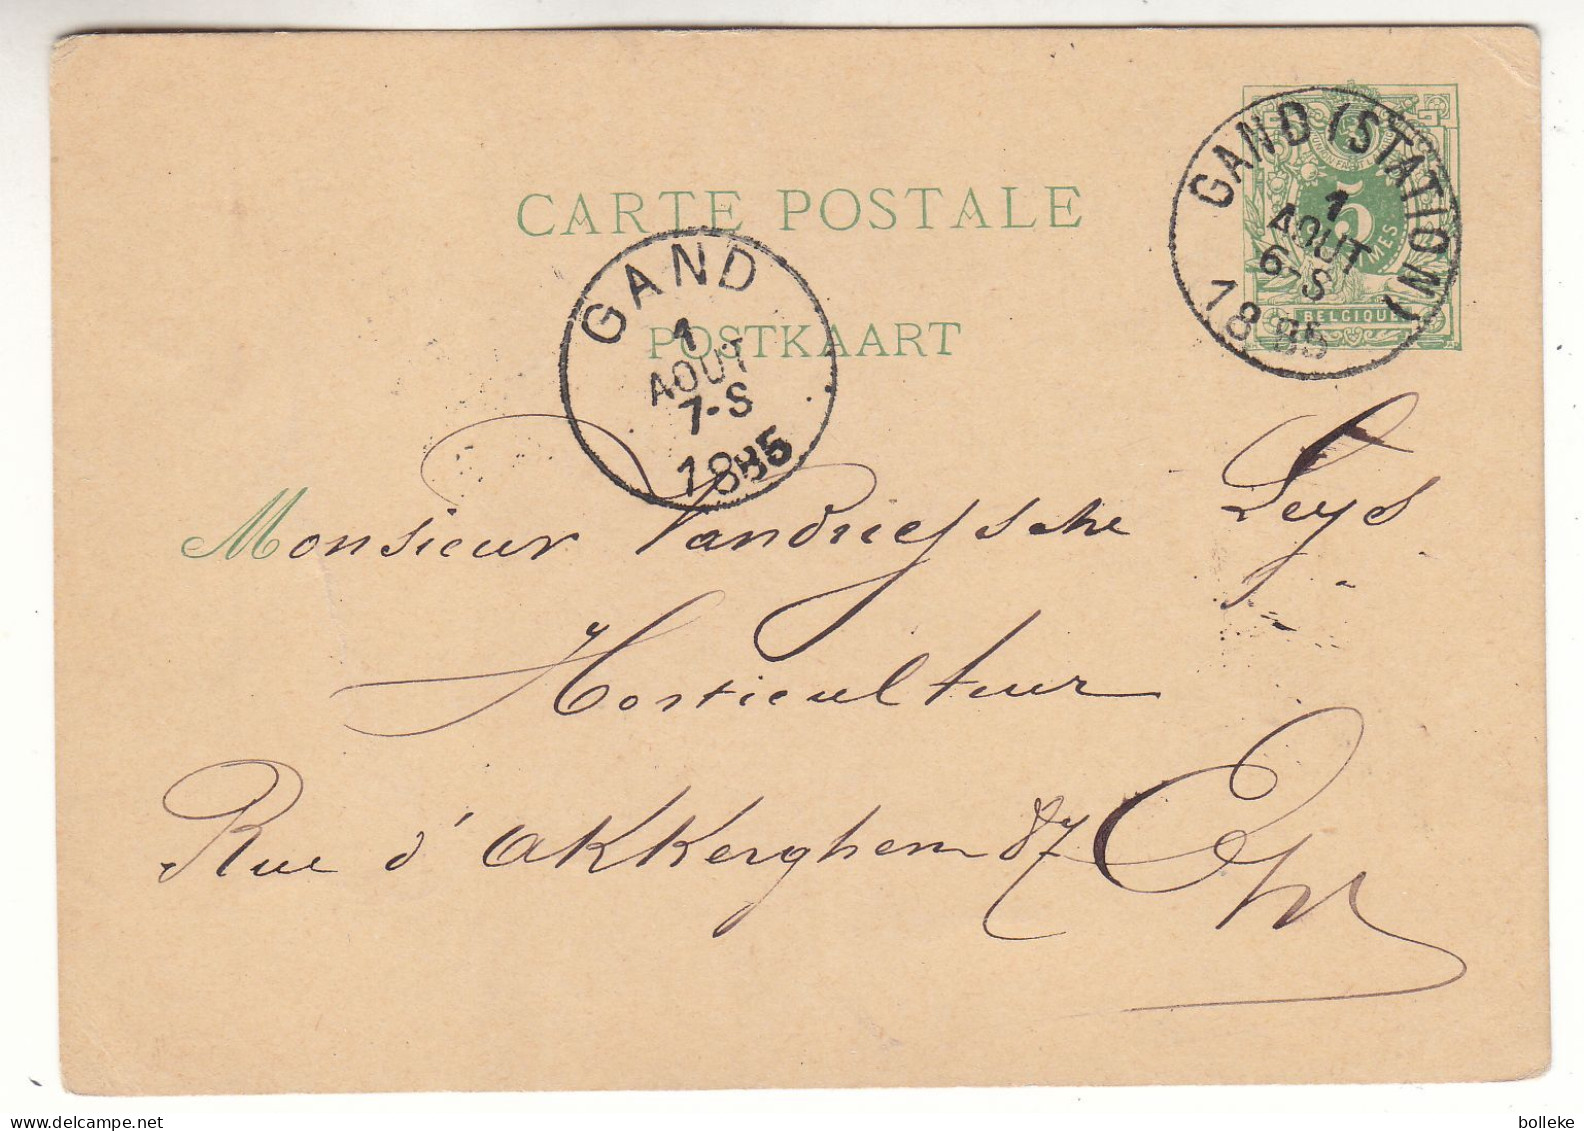 CARTE POSTALE
POSTKAART
GAND (STATION)
1
AOUT
6-S
1885
5
BELGIQUE
GAND
1
AOUT
7-S
1885
Monsieur Vandriessche Leys
Horticulteur
Rue d'akkerghem 87
bolleke